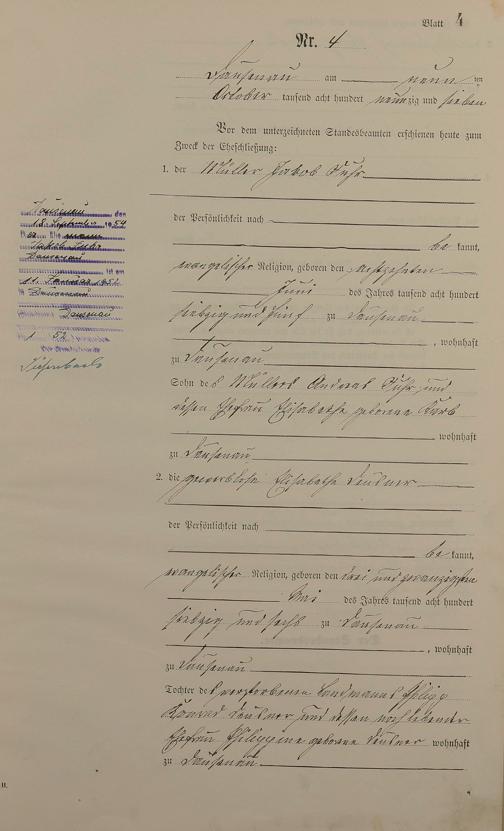 Blatt 4
Nr. 4
Dausenau am neun ten
Oktober tausend acht hundert neunzig und sieben
Vor dem unterzeichneten Standesbeamten erschienen heute zum
Zweck der Eheschließung:
1. der Müller Jakob Fuhr
der Persönlichkeit nach
be kannt,
evangelischer Religion, geboren den
Juni des Jahres tausend acht hundert
siebzig und fünf zu Dausenau
, wohnhaft
zu Dausenau
Sohn des Müllers Andreas Fuhr und
dessen Ehefrau Elisabethe geborene
wohnhaft
zu Dausenau
2. die gewerblose Elisabethe
der Persönlichkeit nach
be kannt,
evangelischer Religion, geboren den drei und zwanzigsten
Mai des Jahres tausend acht hundert
siebzig und sechs zu Dausenau
, wohnhaft
zu Dausenau
Tochter des verstorbenen Landmanns Philipp
Konrad und dessen noch lebender
Ehefrau Philippine geborene wohnhaft
zu Dausenau
Dausenau den
18. September 1954
Dausenau
ist am
11. Januar
in Dausenau
Dausenau
52
Der Standesbeamte